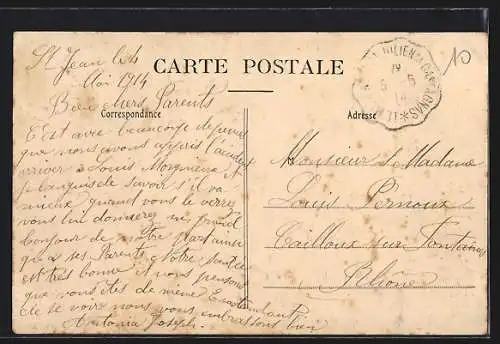 St Jean le 4
Mai 1914
CARTE POSTALE
Bien chers Parents
Correspondance
Adresse
C'est avec beaucoup de peine
que nous avons appris l'accident
arriver a Louis
je languis de savoir s'il va
mieux quand vous le verrez
vous lui donnerez un grand
bonjour de notre part ainsi
que a ses Parents Notre santée
est très bonne et nous pensons
que vous êtes de même En attendant
de se voir nous vous embrassons bien
Antonia Joseph
Monsieur & Madame
Louis Pernoux
Cailloux sur Fontaines
Rhône